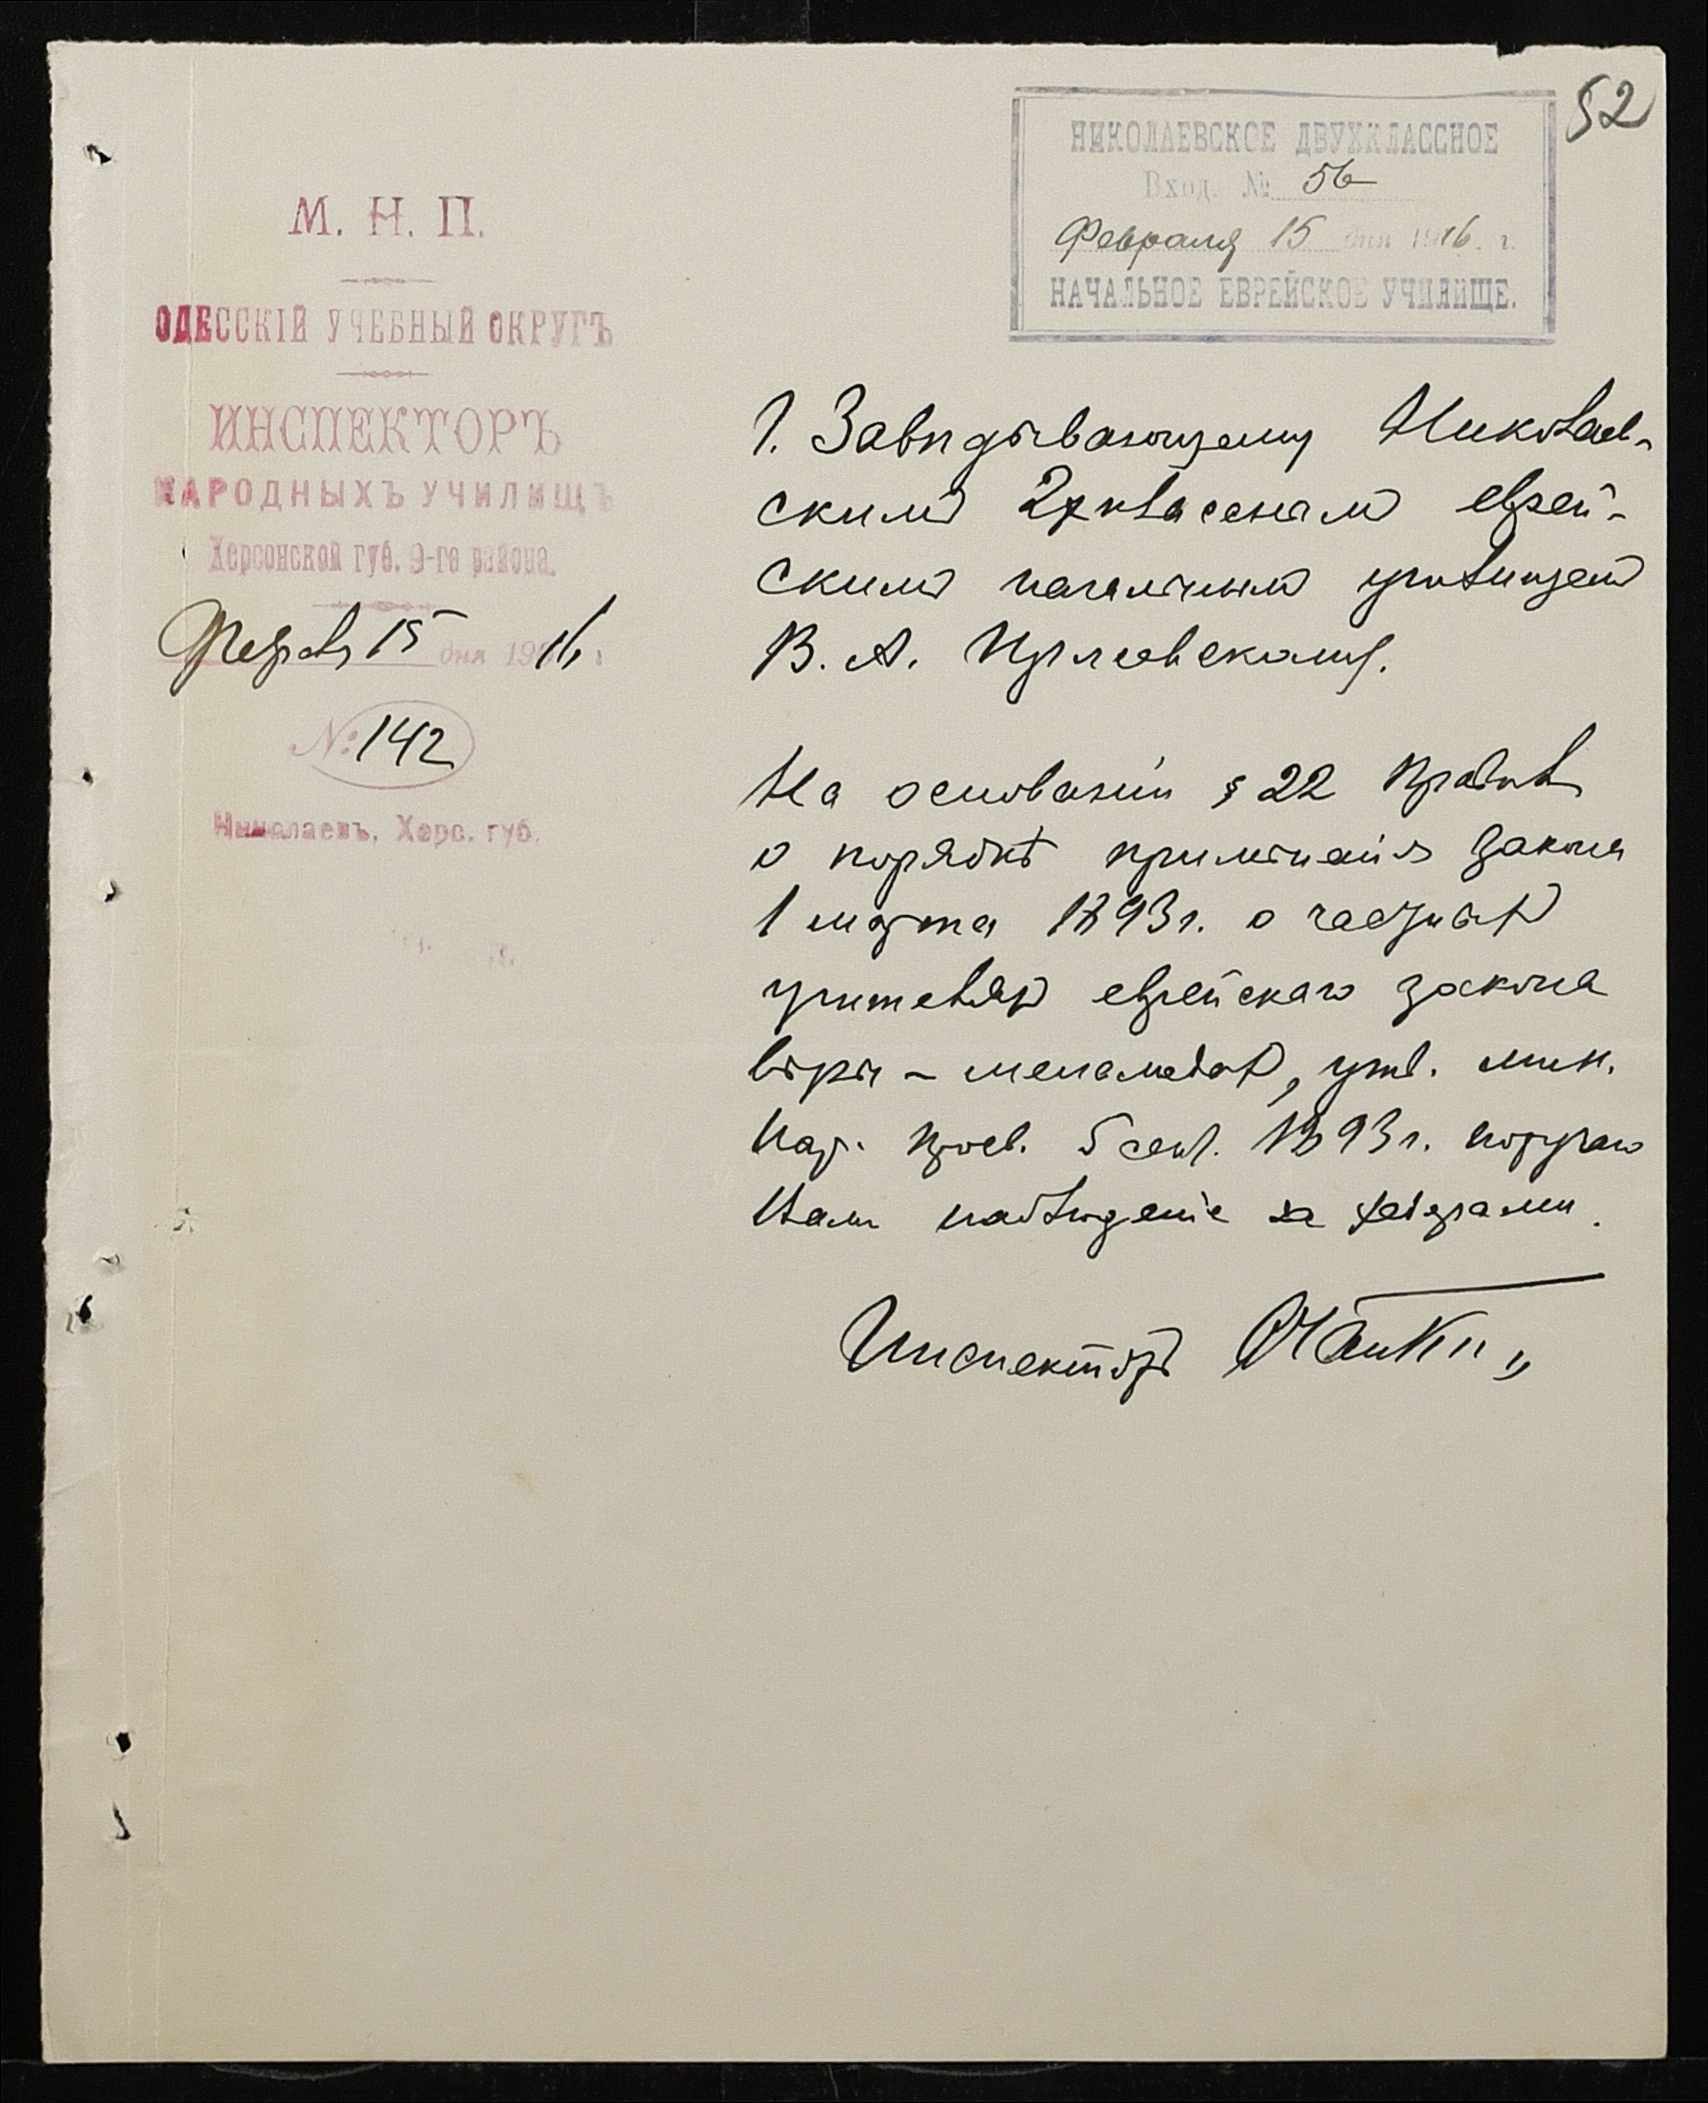 52
НИКОЛАЕВСКОЕ ДВУХКЛАССНОЕ
Вход. № 56
Февраля 15 дня 1916 г.
НАЧАЛЬНОЕ ЕВРЕЙСКОЕ УЧИЛИЩЕ.
М. Н. П.
ОДЕССКІЙ УЧЕБНЫЙ ОКРУГЪ
ИНСПЕКТОРЪ
НАРОДНЫХЪ УЧИЛИЩЪ
Херсонской губ. 9-го района.
Февраля 15 дня 1916 г.
№ 142
Николаевъ, Херс. губ.
Г. Завѣдывающему Николаев-
скимъ 2хкласснымъ еврей-
скимъ начальнымъ училищемъ
В. А.
На основаніи § 22 Правилъ
о порядкѣ примѣненія закона
1 марта 1893 г. о частныхъ
учителяхъ еврейскаго закона
вѣры - меламедахъ, утв. мин.
нар. просв. 5 сент. 1893 г. поручаю
Вамъ наблюденіе за хедерами.
Инспекторъ